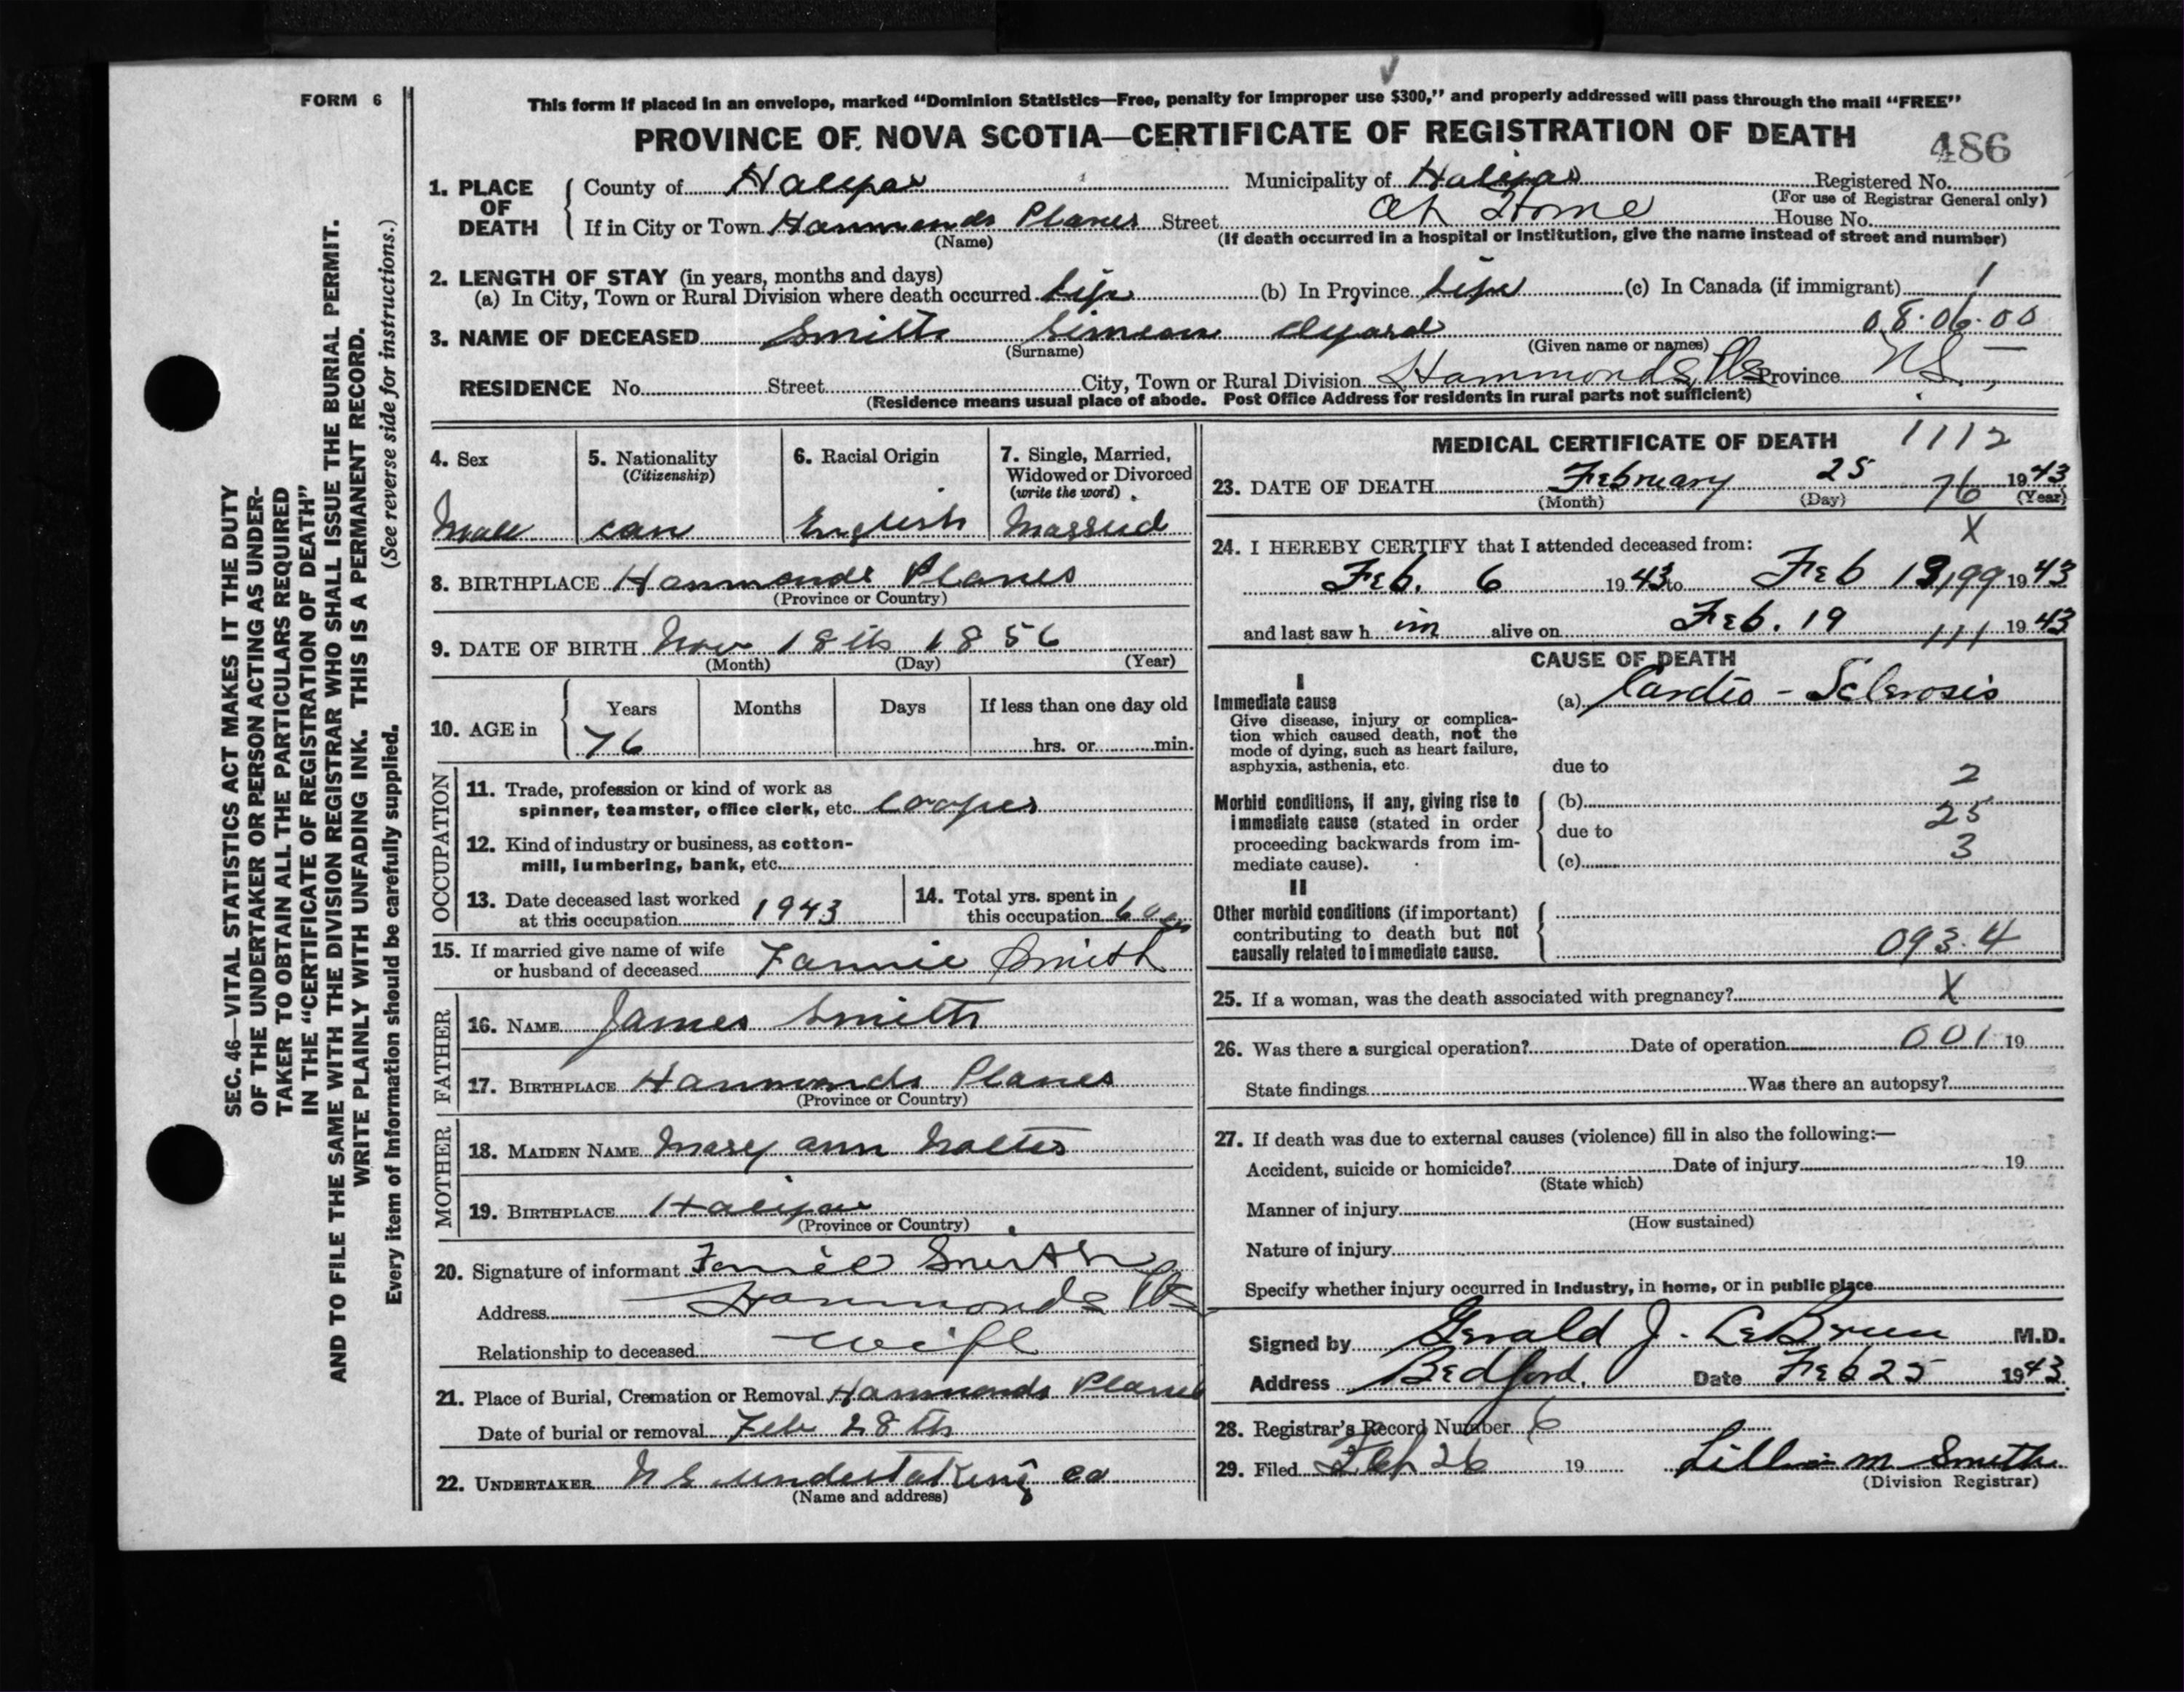 FORM 6
This form if placed in an envelope, marked "Dominion Statistics—Free, penalty for improper use $300," and properly addressed will pass through the mail "FREE"
PROVINCE OF NOVA SCOTIA—CERTIFICATE OF REGISTRATION OF DEATH
486
1. PLACE OF DEATH
County of Halifax Municipality of Halifax Registered No.
(For use of Registrar General only)
If in City or Town Hammonds Planes Street At Home House No.
(Name) (If death occurred in a hospital or institution, give the name instead of street and number)
2. LENGTH OF STAY (in years, months and days)
(a) In City, Town or Rural Division where death occurred Life (b) In Province Life (c) In Canada (if immigrant) 1
08.06.00
3. NAME OF DECEASED Smith Simeon
(Surname) (Given name or names)
RESIDENCE No. Street City, Town or Rural Division Hammonds Pls Province N.S.
(Residence means usual place of abode. Post Office Address for residents in rural parts not sufficient)
4. Sex
Male
5. Nationality
(Citizenship)
can
6. Racial Origin
English
7. Single, Married,
Widowed or Divorced
(write the word)
Married
8. BIRTHPLACE Hammonds Planes
(Province or Country)
9. DATE OF BIRTH Nov 18th 1856
(Month) (Day) (Year)
10. AGE in
Years Months Days If less than one day old
76 hrs. or min.
OCCUPATION
11. Trade, profession or kind of work as
spinner, teamster, office clerk, etc. cooper
12. Kind of industry or business, as cotton-
mill, lumbering, bank, etc.
13. Date deceased last worked
at this occupation 1943
14. Total yrs. spent in
this occupation 60 yrs
15. If married give name of wife
or husband of deceased Fannie Smith
FATHER
16. NAME James Smith
17. BIRTHPLACE Hammonds Planes
(Province or Country)
MOTHER
18. MAIDEN NAME Mary ann
19. BIRTHPLACE Halifax
(Province or Country)
20. Signature of informant Fannie Smith
Address Hammonds Pls
Relationship to deceased wife
21. Place of Burial, Cremation or Removal Hammonds Planes
Date of burial or removal Feb 28th
22. UNDERTAKER N S undertaking co
(Name and address)
MEDICAL CERTIFICATE OF DEATH 1112
23. DATE OF DEATH February 25 1943
(Month) (Day) (Year)
76
X
24. I HEREBY CERTIFY that I attended deceased from:
Feb. 6 1943 to Feb 19 1943
199
and last saw h im alive on Feb. 19 1943
111
CAUSE OF DEATH
I
Immediate cause
Give disease, injury or complica-
tion which caused death, not the
mode of dying, such as heart failure,
asphyxia, asthenia, etc.
(a) Cardio - Sclerosis
due to
2
Morbid conditions, if any, giving rise to
immediate cause (stated in order
proceeding backwards from im-
mediate cause).
(b)
25
due to
3
(c)
II
Other morbid conditions (if important)
contributing to death but not
causally related to immediate cause.
093.4
25. If a woman, was the death associated with pregnancy? X
26. Was there a surgical operation? Date of operation 001 19
State findings Was there an autopsy?
27. If death was due to external causes (violence) fill in also the following:—
Accident, suicide or homicide? Date of injury 19
(State which)
Manner of injury
(How sustained)
Nature of injury
Specify whether injury occurred in Industry, in home, or in public place
Signed by Gerald J. LeBrun M.D.
Address Bedford. Date Feb 25 1943
28. Registrar's Record Number 6
29. Filed Feb 26 19 Lillian M Smith
(Division Registrar)
SEC. 46—VITAL STATISTICS ACT MAKES IT THE DUTY
OF THE UNDERTAKER OR PERSON ACTING AS UNDER-
TAKER TO OBTAIN ALL THE PARTICULARS REQUIRED
IN THE "CERTIFICATE OF REGISTRATION OF DEATH"
AND TO FILE THE SAME WITH THE DIVISION REGISTRAR WHO SHALL ISSUE THE BURIAL PERMIT.
WRITE PLAINLY WITH UNFADING INK. THIS IS A PERMANENT RECORD.
Every item of Information should be carefully supplied. (See reverse side for instructions.)